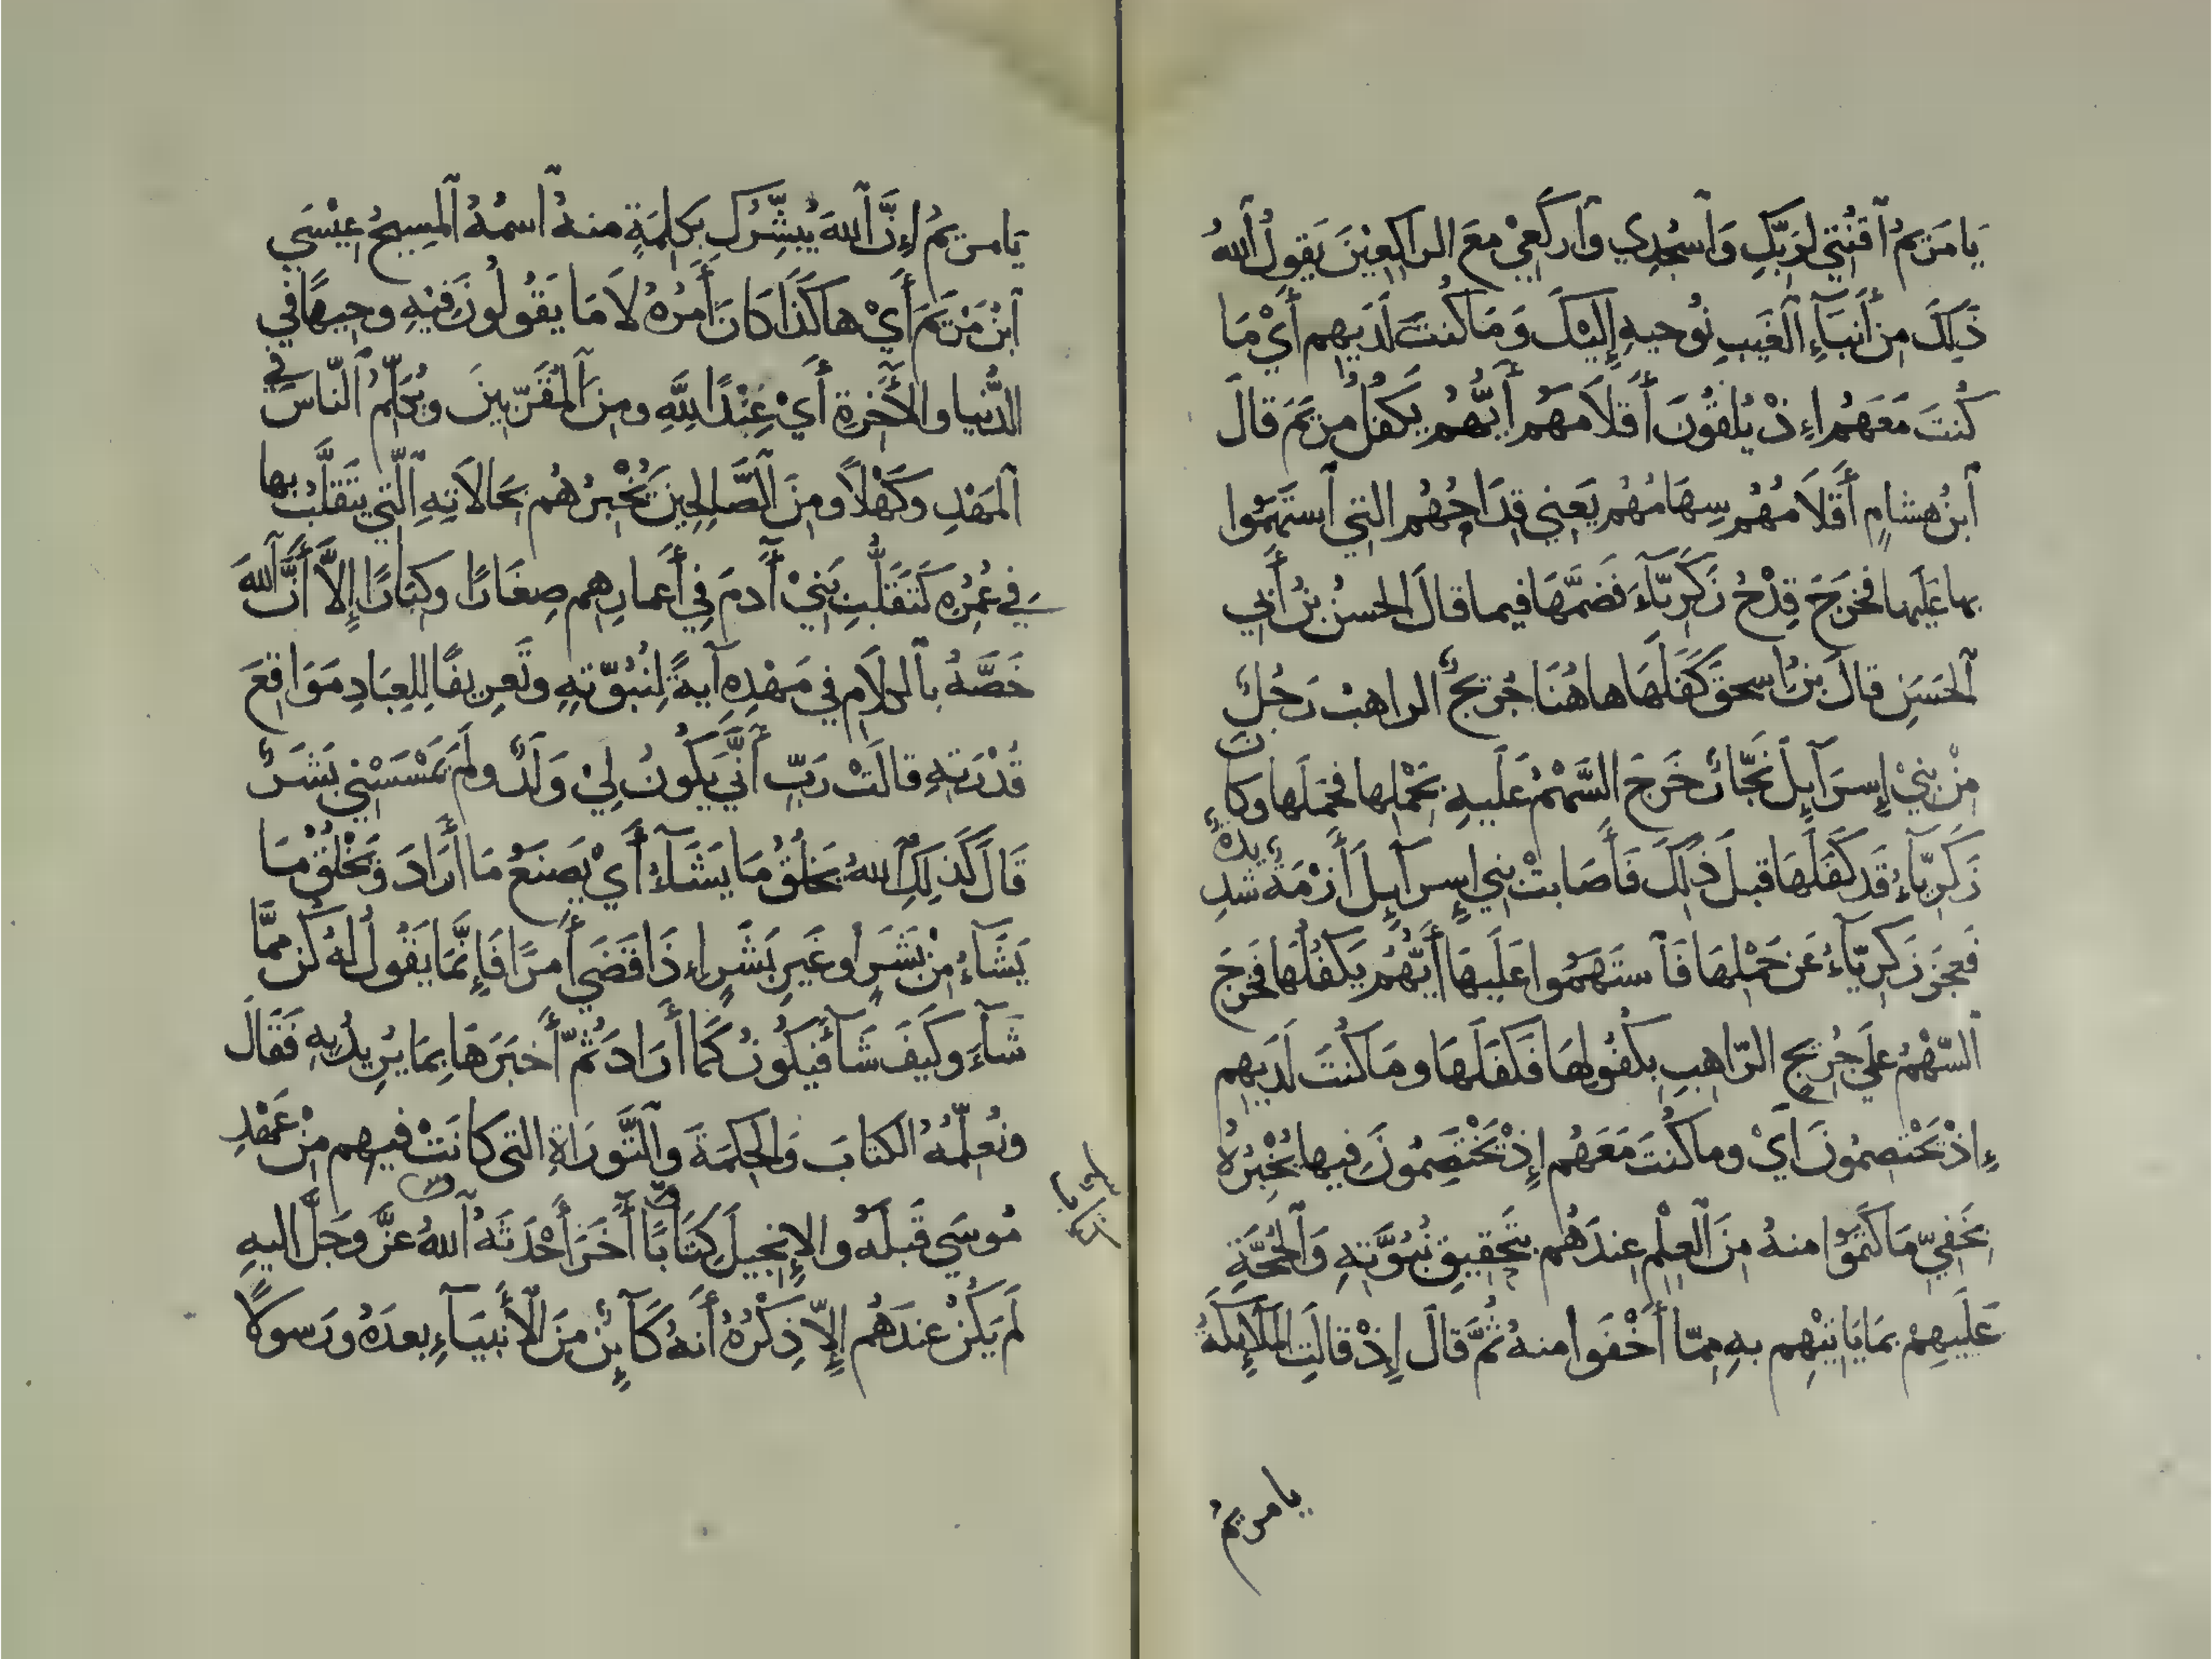 يَا مَرْيَمُ ٱقْنُتِي لِرَبِّكِ وَٱسْجُدِي وَٱركَعِيْ مَعَ الراكِعِيْنَ يَقولُ ٱللهُ
ذَلِكَ مِن أَنبَآءِ ٱلغَيبِ نُوحيهِ إِلَيْكَ وَمَا كُنتَ لَدَيهِم أَيْ مَا
كُنتَ مَعَهُم إِذْ يُلقُونَ أَقلاَمَهُم أَيُّهُم يَكفُلُ مَريَمَ قالَ
ٱبنُ هشامٍ أَقلاَمُهُم سِهَامُهُم يَعنِي قِدَاحُهُم التِي ٱستَهَمُوا
بها عَلَيها فخرَجَ قِدْحُ زَكَرِيّآءَ فَضَمَّهَا فيما قالَ الحسنُ بنُ أَبِي
ٱلحَسَنِ قالَ بنُ إسحقَ كَفَلَهَا هاهُنَا جُرَيجٌ الراهبُ رَجُلٌ
مِنْ بنِيْ إِسرَآيِلَ نَجّارٌ خَرَجَ السَّهْمُ عَلَيهِ بحَمْلِها فحمَلَها وكانَ
زَكَرِيّآءُ قَد كَفَلَهَا قبلَ ذَلِكَ فَأَصَابتْ بنِي إِسرَآيِلَ أَزْمَةٌ شَدِيدَةٌ
فَعجَزَ زَكَرِيّآءُ عَن حَمْلِهَا فَٱستَهَمُوا عَلَيهَا أَيُّهُم يَكفُلُهَا فَخَرَجَ
ٱلسَّهْمُ علَى جُرَيجٍ الرّاهِبِ بِكُفُولِهَا فَكَفَلَهَا ومَا كُنتَ لَدَيهِم
إِذْ يَخْتَصِمُونَ أَيْ وما كُنتَ مَعَهُم إِذْ يَخْتَصِمُونَ فِيها يُخْبِرُهُ
بَخَفِيِّ مَا كَتَمُوا منهُ مِنَ ٱلعِلْمِ عِندَهُم بتَحقِيقِ نُبُوَّتِهِ وَٱلحُجَّةِ
عَلَيهِمْ بمَا يَاتيْهِم بهِ مِمّا أَخْفَوا منهُ ثُمَّ قَالَ إِذْ قالَتِ المَلاَيِكَةُ
يا مريمُ
يَا مريمُ إِنَّ ٱللهَ يُبَشِّرُكِ بِكلِمَةٍ منهُ ٱسمُهُ ٱلمَسِيحُ عِيْسَي
ٱبنُ مَرْيَمَ أَيْ هاكَذَا كَانَ أَمرُهُ لاَ مَا يَقُولُونَ فِيْهِ وجِيهًا فِي
الدُّنيا والأَخِرةِ أَيْ عِنْدَ اللهِ ومِنَ ٱلمُقَرَّبِينَ ويُكَلِّمُ ٱلنّاسَ فِي
ٱلمَهْدِ وكَهْلاً ومِنَ ٱلصَّالِحِينَ يُخْبِرُهُم بحَالاَتِهِ ٱلتِّي يَتَقلَّبُ بها
فِي عُمُرِهِ كَتَقَلُّبِ بَنِيْ أَدَمَ فِي أَعمارِهِم صِغَارًا وكِبَارًا إِلاَّ أَنَّ ٱللهَ
خَصَّهُ بٱلكلاَمِ فِي مَهْدِهِ آيةً لِنُبُوّتهِ وتَعرِيفًا لِلعِبَادِ مَوَاقعَ
قُدْرَتِهِ قالَتْ رَبِّ أَنَّي يَكُونُ لِيْ وَلَدٌ ولَم يَمْسَسْنِي بَشَرٌ
قَالَ كَذَلِكِ ٱللهُ يَخلُقُ مَا يَشَآءُ أَيْ يَصنَعُ مَا أَرَادَ وَيَخْلُقُ مَا
يَشَآءُ مِنْ بَشَرٍ أَو غَيرِ بَشَرٍ إِذَا قَضَي أَمرًا فَإِنَّمَا يَقُولُ لهُ كُن ممَّا
شَآءَ وكَيفَ شَآءَ فَيَكُونُ كَمَا أَرَادَ ثُمّ أَخبَرَهَا بِمَا يُرِيدُ بِهِ فَقَالَ
ونُعَلِّمُهُ الكتابَ وَالحِكمَةَ وٱلتَّورَاةِ التي كانَتْ فيهم مِنْ عَهْدِ
مُوسَي قَبلَهُ والإِنجِيلَ كِتَابًا أَخَرَ أَحْدَثَهُ ٱللهُ عَزَّ وَجَلَّ اليهِ
لَم يَكُنْ عندَهُم إِلاّ ذِكْرُهُ أَنهُ كَآيِنٌ مِنَ ٱلأَنبِيَآءِ بعدَهُ ورَسولاً